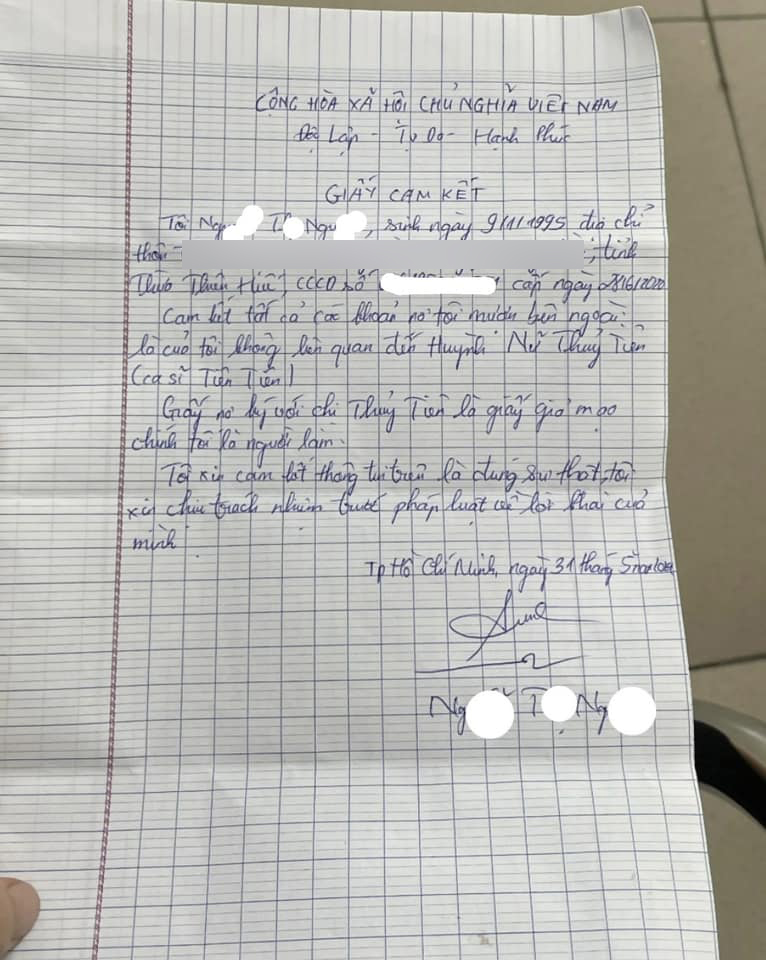 CỘNG HÒA XÃ HỘI CHỦ NGHĨA VIỆT NAM
Độc Lập - Tự Do - Hạnh Phúc
GIẤY CAM KẾT
Tôi Ng T Ngu , sinh ngày 9/1/1995 địa chỉ
thôn ; tỉnh
Thừa Thiên Huế, CCCD số cấp ngày
Cam kết tất cả các khoản nợ tôi mượn bên ngoài
là của tôi không liên quan đến Huỳnh Nữ Thuỷ Tiên
(ca sĩ Tiên Tiên)
Giấy nợ ký với chị Thuỷ Tiên là giấy giả mạo
chính tôi là người làm.
Tôi xin cam kết thông tin trên là đúng sự thật, tôi
xin chịu trách nhiệm trước pháp luật về lời khai của
mình
Tp Hồ Chí Minh, ngày 31 tháng 5
Ng T Ng